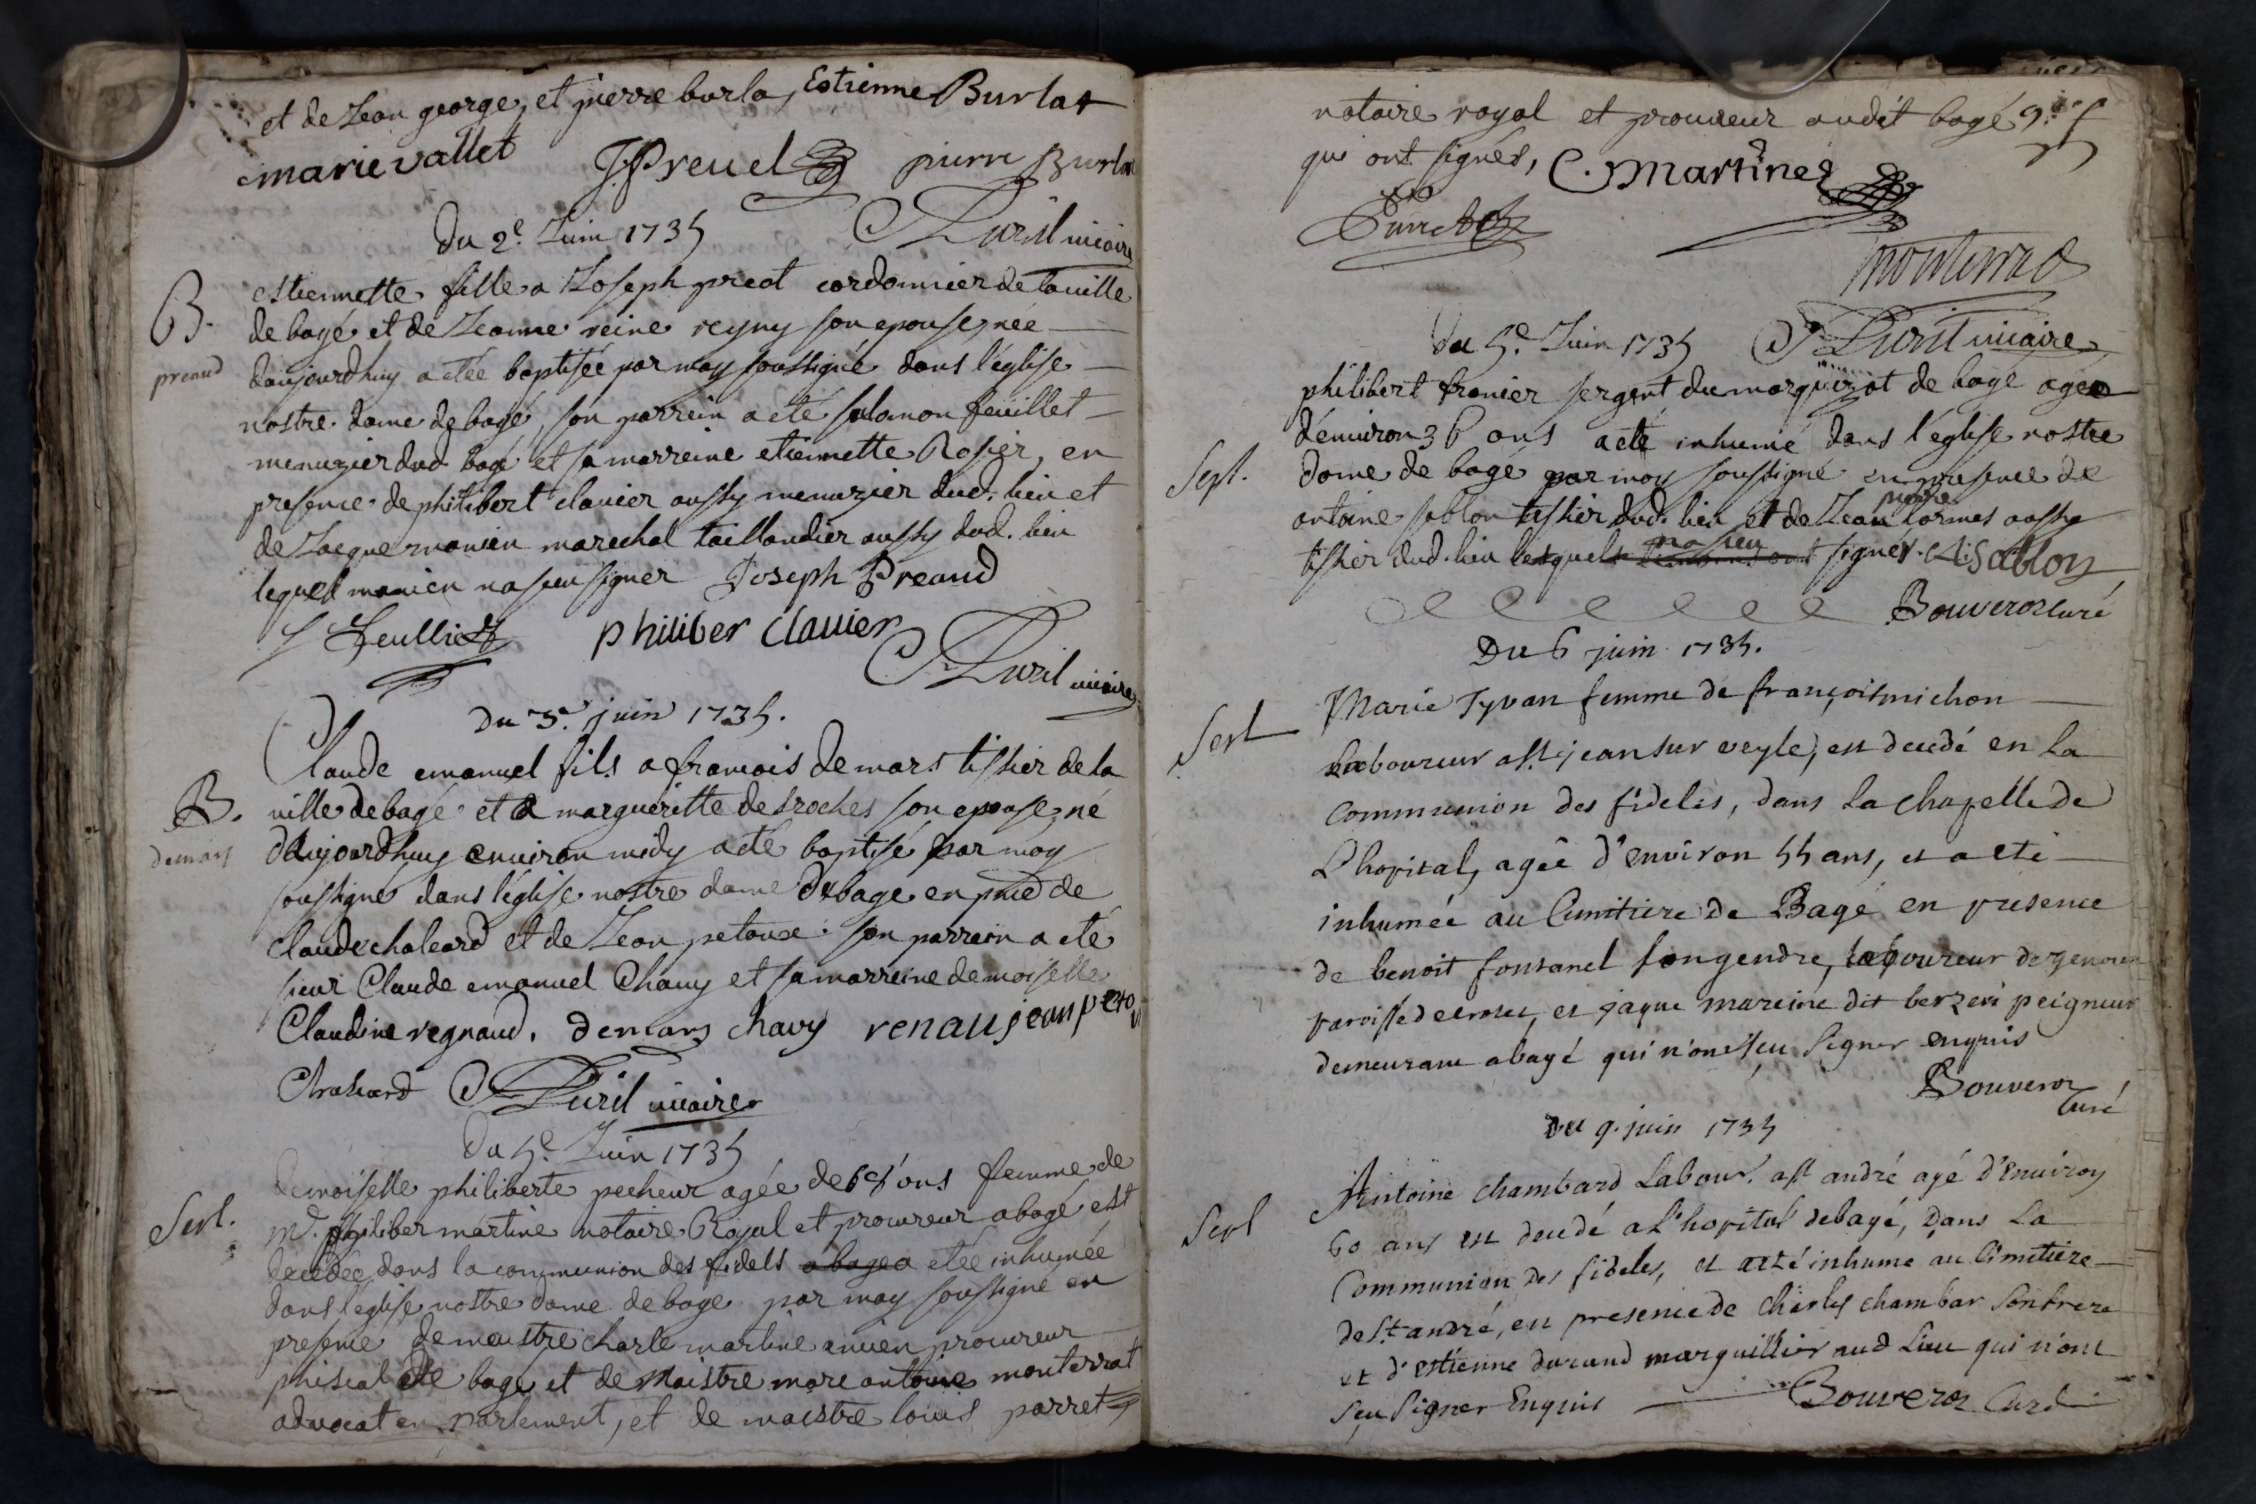 et de Jean george, et pierre burla, Estienne Burlat
marie vallet JPreuel pierre Burla
Du 2e. Juin 1735 Duril vicaire
B. estiennette fille a Joseph preot cordonnier de la ville
de bagé et de Jeanne reine reyny son epouse, née
preaud daujourdhuy a etée baptisée par moy soussigné dans l'église
nostre dame de bagé, son parrein a eté salomon feuillet
menuzier dud bagé et sa marreine etiennette Rosier, en
presence de philibert clavier aussy menuzier dud. lieu et
de Jacque manien marechal taillandier aussy dud. lieu
lequel manien na sceu signer Joseph Preaud
S Feulliet philiber clauier
Duril vicaire
du 3e. juin 1735.
Claude emanuel fils a francois demars tissier de la
B. ville de bagé et a marguéritte desroches son epouse, né
demars daujourdhuy environ midy a eté baptisé par moy
soussigné dans l'église nostre dame de bagé en pnce de
claude chaleard et de Jean petoux: son parrein a eté
sieur Claude emanuel Chauy et sa marreine demoiselle
Claudine regnaud. demars chavy renau jean peto
Chaleard Duril vicaire
Du 5e. Juin 1735
demoiselle philiberte pecheur agée de 65 ans femme de
Sepl. mr. philiber martine notaire Royal et procureur a bagé est
decedée dans la communion des fidels a bagé a etée inhumée
dans l'eglise nostre dame de bage par moy soussigné en
presence de maistre charle martine ancien procureur
phiscal de bage et de Maistre marc antoine monterrat
advocat en parlement, et de maistre louis parret
notaire royal et procureur audit bagé
qui ont signés, C. Martine
monterrad
du 5e. Juin 1735 Duril vicaire
philibert franier sergent du marquizat de bagé agee
d'environ 36 ans a eté inhumé dans l'église nostre
Sepl. dame de bagé par moy soussigné en presence de
antoine sablon tissier dud. lieu et de Jean pierre cormes aussy
tissier dud. lieu lesquels na sceu signer. A Sablon
Bouveroz curé
Du 6 juin 1735.
Sepl Marie Tyvan femme de françois michon
Laboureur a st jean sur veyle, est decedé en la
Communion des fideles, dans la chapelle de
L'hopital, agée d'environ 55 ans, et a eté
inhumée au Cimitiere de Bagé en presence
de benoit fontanel son gendre, laboureur
paroisse de crotet, et jaque mareine dit berzeri peigneur
demeurant a bagé qui n'ont sçeu signer enquis
Bouveroz
Curé
Du 9. juin 1735
Antoine chambard Labour. a st andré agé d'environ
Sepl 60 ans est decedé a L'hopital de bagé, dans La
Communion des fideles, et a eté inhumé au Cimetiere
de St. andré, en presence de Charles chambar son frere
et d'estienne durand marguillier aud Lieu qui n'ont
sçeu signer Enquis Bouveroz Curé